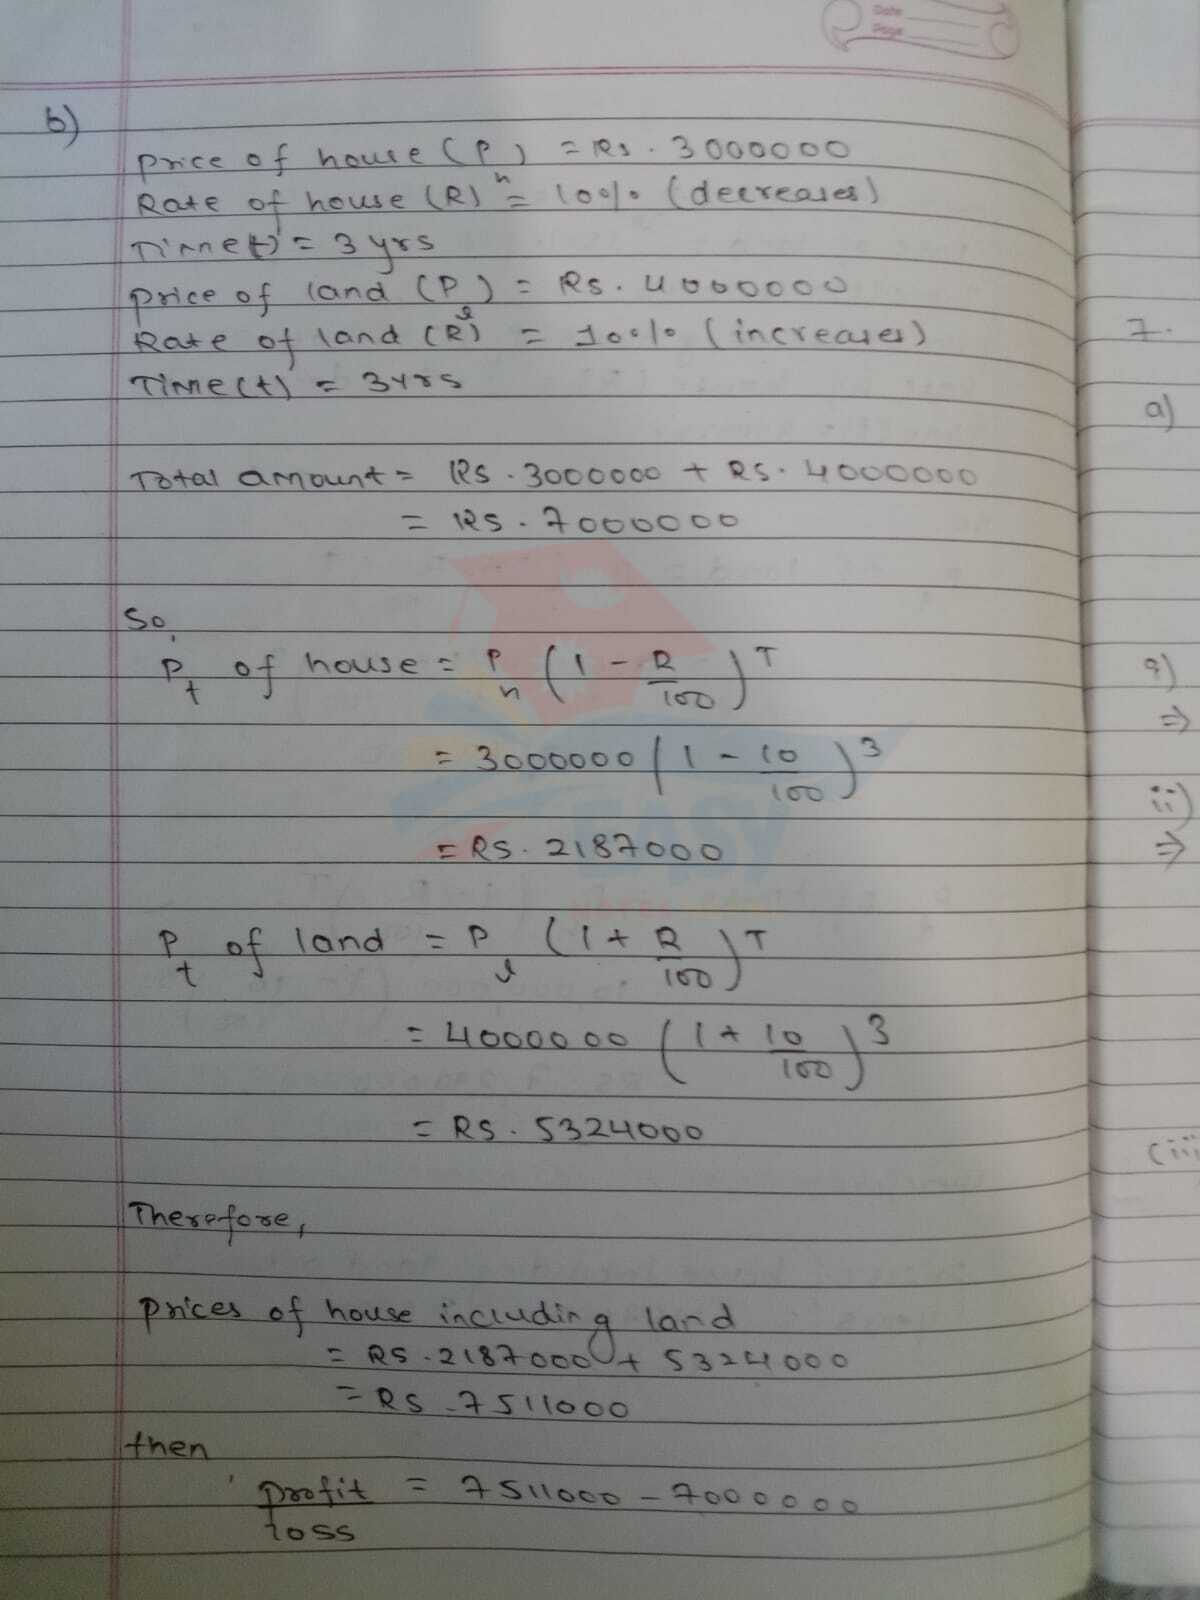 Date
Page
b)
Price of house (Ph) = Rs. 3000000
Rate of house (R) = 10% (decreases)
Time(t) = 3 yrs
Price of land (Pl) = Rs. 4000000
Rate of land (R) = 10% (increases)
Time(t) = 3yrs
Total amount = Rs. 3000000 + Rs. 4000000
= Rs. 7000000
So,
Pt of house = Ph (1 - R/100)^T
= 3000000 (1 - 10/100)^3
= Rs. 2187000
EASY
Pt of land = Pl (1 + R/100)^T
= 4000000 (1 + 10/100)^3
= Rs. 5324000
Therefore,
Prices of house including land
= Rs. 2187000 + 5324000
= Rs. 7511000
then
, profit/loss = 7511000 - 7000000
7.
a)
⇒
ii)
⇒
(iii